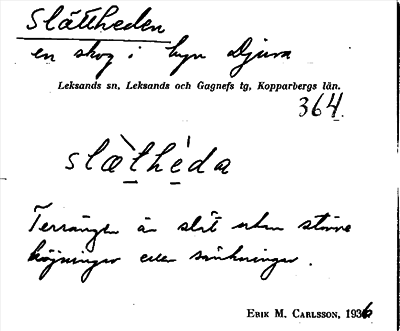 Slättheden
en skog i byn Djura
Leksands sn, Leksands och Gagnefs tg, Kopparbergs län.
364.
slæ̀thèdaɑ
Terrängen är slät utan större
höjningar eller sänkningar.
ERIK M. CARLSSON, 1936